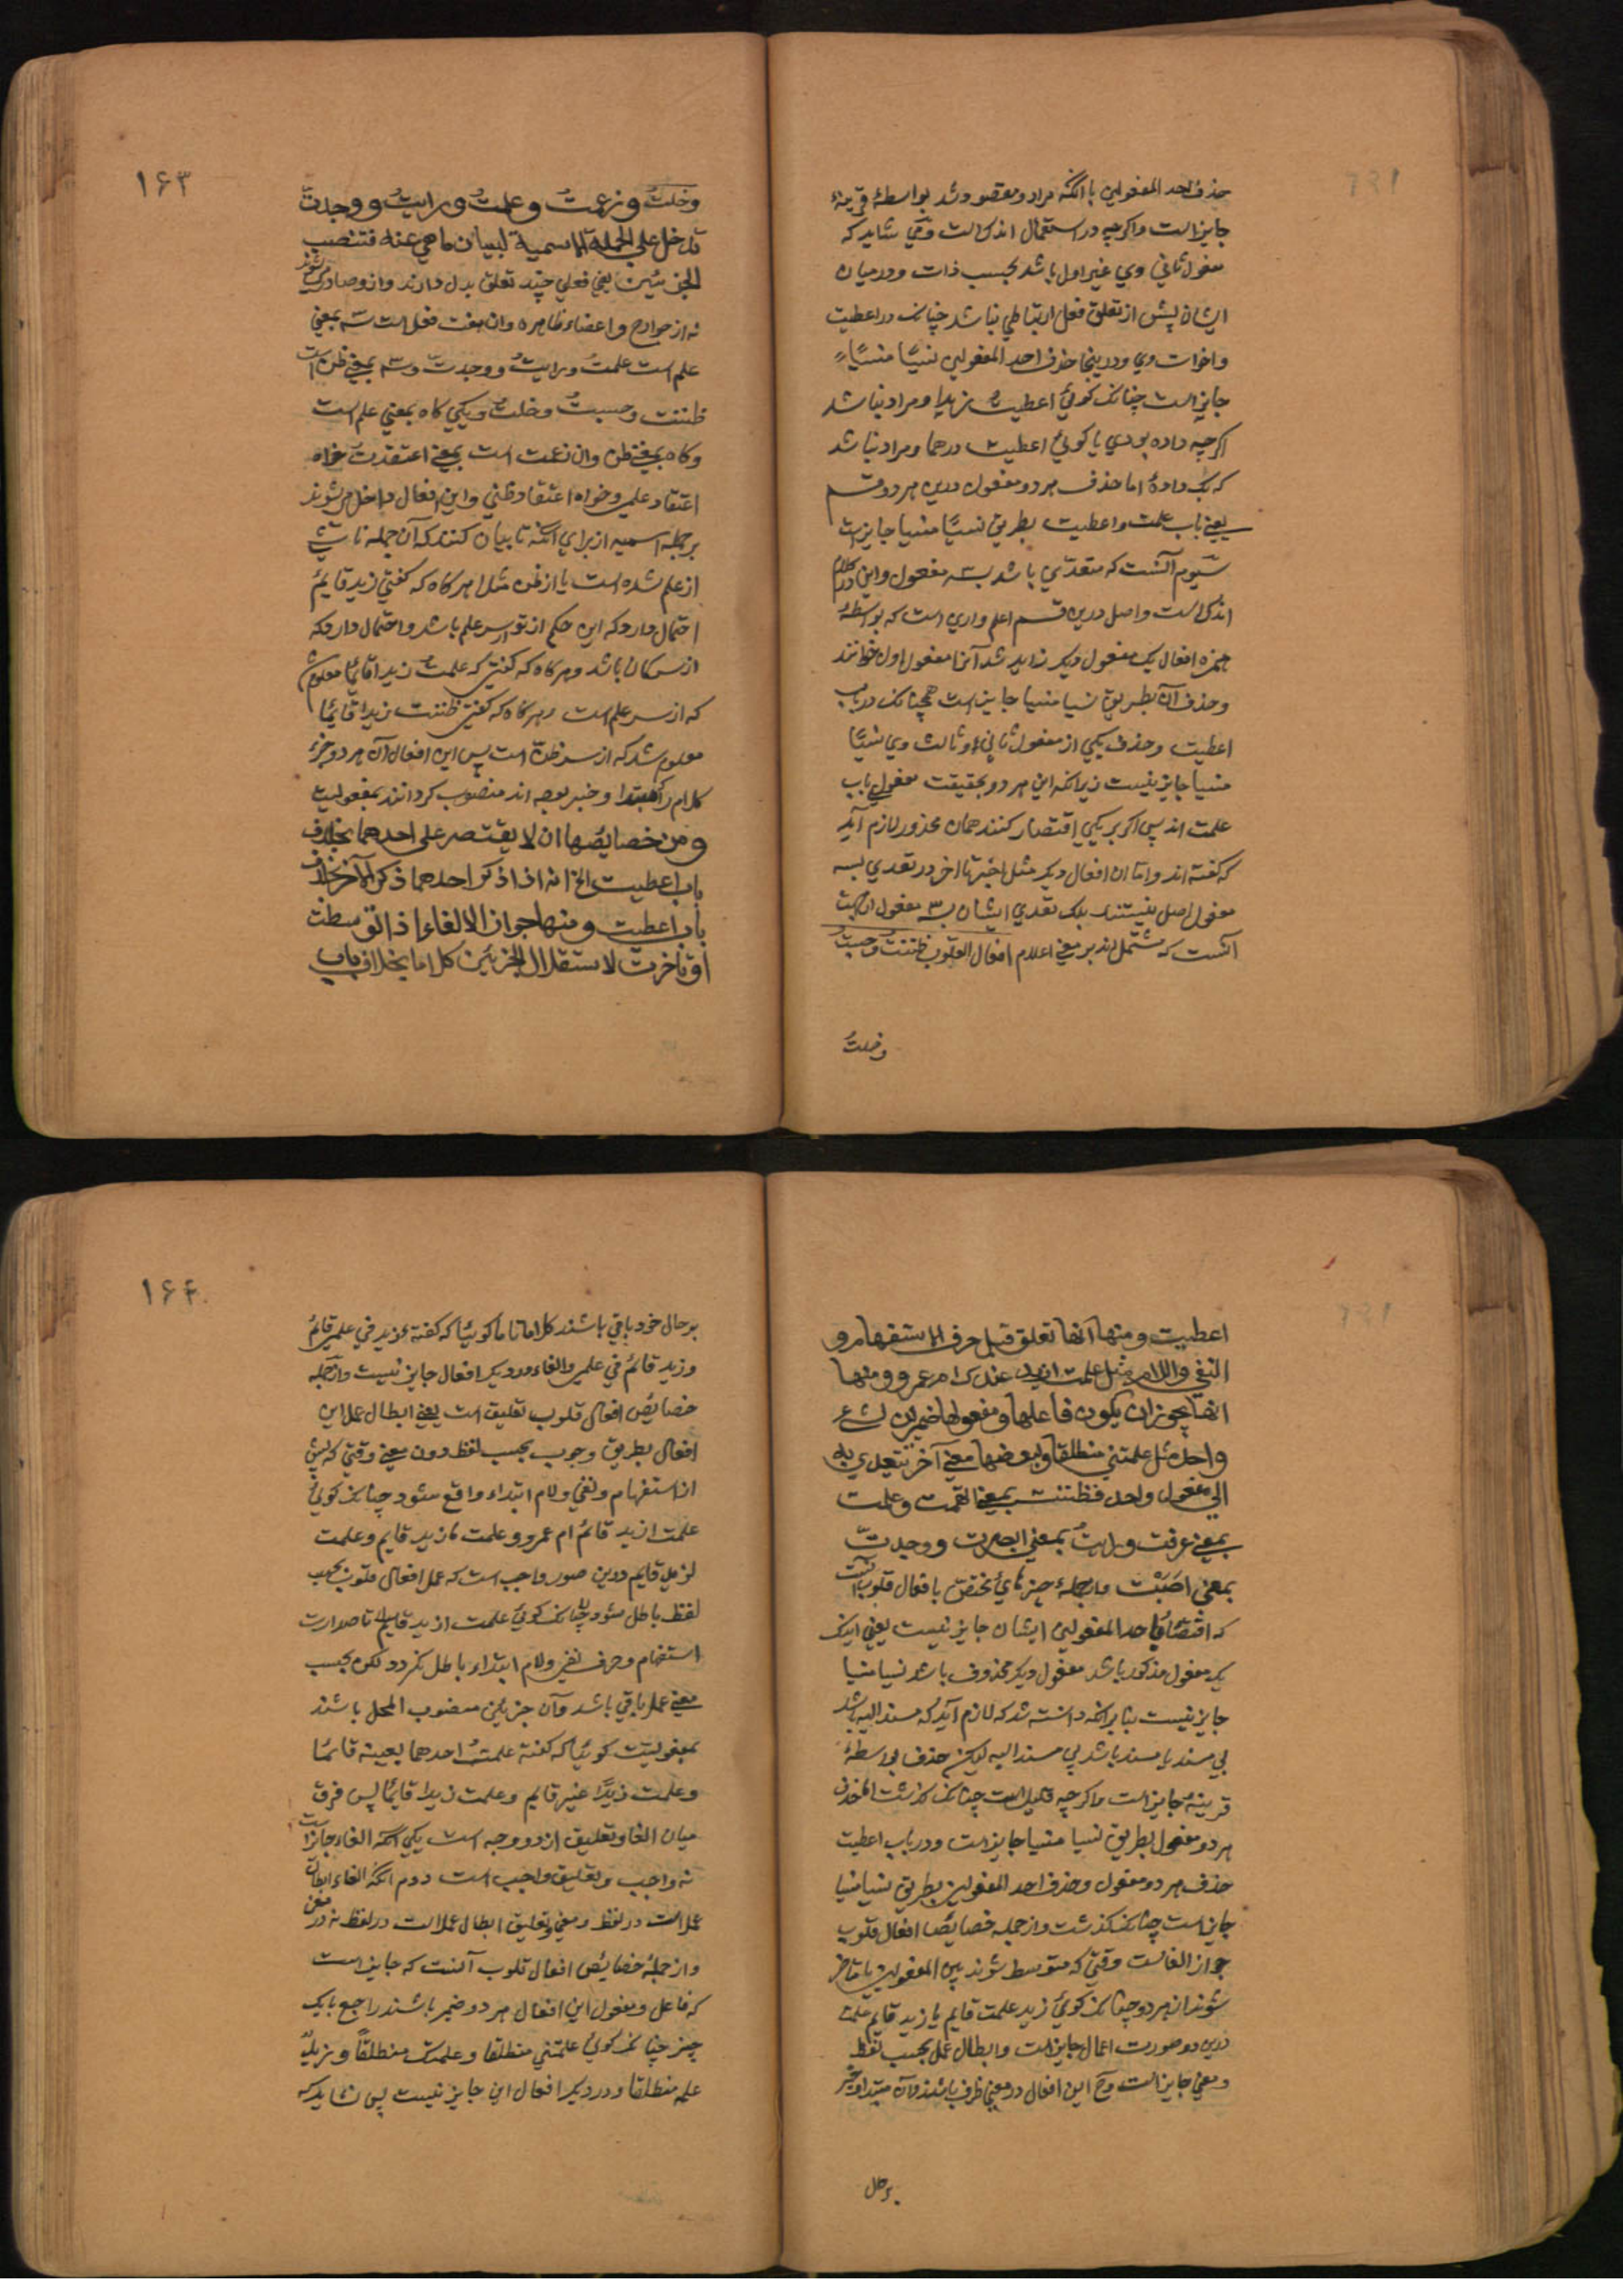 حذف احد المفعولین با آنکه مراد و مقصود شد بواسطهٔ قرینهٔ
جایز است و اکرچه در استعمال اندک است وقتی شاید که
مفعول ثانی وی غیر اول باشد بحسب ذات و در میان
ایشان پیش از تعلق فعل ارتباطی نباشد چنانک در اعطیت
و اخوات وی و درینجا حذف احد المفعولین نسیًا منسیًا
جایز است چنانک کوئی اعطیت زیدا و مراد نباشد
اکرچه داده بودی یا کوئی اعطیت درهما و مراد نباشد
که بکه دادهٔ اما حذف هر دو مفعول درین هر دو قسم
یعنی باب علمت و اعطیت بطریق نسیًا منسیا جایز است
سیوم آنست که متعدّی باشد بسه مفعول و این در کلام
اندک است و اصل درین قسم اعلم و اری است که بواسطهٔ
همزه افعال یک مفعول دیکر زاید شد آنرا مفعول اول خوانند
و حذف آن بطریق نسیا منسیا جایز است همچنانک در باب
اعطیت و حذف یکی از مفعول ثانی و ثالث وی نسیًا
منسیا جایز نیست زیرا که این هر دو بحقیقت مفعولی باب
علمت اند پس اکر بر یکی اقتصار کنند همان محذور لازم آید
که کفته اند و اما ان افعال دیکر مثل اخبر تا اخر در تعدی بسه
مفعول اصل نیستند بلک تعدی ایشان بسه مفعول از جهت
آنست که مشتمل اند بر معنی اعلام افعال القلوب ظننتُ وحسبتُ
وخلتُ
۱۶۳
وخلتُ وزعمتُ وعلمتُ ورایتُ ووجدتُ
تدخل علی الجملة الاسمیة لبیان ما هی عنه فتنصب
الجزئین یعنی فعلی چند تعلق بدل دارند و ازو صادر می شوند
نه از جوارح و اعضاء ظاهره و ان هفت فعل است سه بمعنی
علم است علمتُ ورایتُ ووجدت و سه بمعنی ظن است
ظننت وحسبتُ وخلتُ و یکی کاه بمعنی علم است
و کاه بمعنی ظن و ان زعمت است بمعنی اعتقدت خواه
اعتقاد علمی و خواه اعتقاد ظنی و این افعال داخل می شوند
بر جمله اسمیه از برای آنکه تا بیان کنند که آن جمله ناشی
از علم شده است یا از ظن مثلا هرکاه که کفتی زید قایمٌ
احتمال دارد که این حکم از تو از سر علم باشد و احتمال دارد که
از سر کمان باشد و هرکاه که کفتی که علمتُ زیدا قائما معلوم شد
که از سر علم است و هرکاه که کفتی ظننت زیدا قایما
معلوم شد که از سر ظن است پس این افعال آن هر دو جزء
کلام را که مبتدا و خبر بوده اند منصوب کردانند بمفعولیت
ومن خصایصها ان لا یقتصر علی احدهما بخلاف
باب اعطیت الخ انه اذا ذکر احدهما ذکر الآخر بخلاف
باب اعطیت ومنها جواز الالغاء اذا توسطت
او تاخرت لاستقلال الجزئین کلاما بخلاف باب
اعطیت ومنها انها تعلق قبل حرف الاستفهام و
النفی واللام مثل علمت ازید عندک ام عمرو ومنها
انها یجوز ان یکون فاعلها ومفعولها ضمیرین لشیء
واحد مثل علمتنی منطلقا ولبعضها معنی آخر تتعدی به
الی مفعول واحد فظننت بمعنی اتهمت وعلمت
بمعنی عرفت ورایت بمعنی ابصرت ووجدت
بمعنی اصَبْتُ و از جملهٔ چیزهایی مختص بافعال قلوب آنست
که اقتصار باحد المفعولین ایشان جایز نیست یعنی اینک
یک مفعول مذکور باشد مفعول دیکر محذوف باشد نسیا منسیا
جایز نیست بنابر انکه دانسته شد که لازم آید که مسند الیه باشد
بی مسند یا مسند باشد بی مسند الیه لیکن حذف بواسطهٔ
قرینهٔ جایز است و اکرچه قلیل است چنانک کذشت اما حذف
هر دو مفعول بطریق نسیا منسیا جایز است و در باب اعطیت
حذف هر دو مفعول و حذف احد المفعولین بطریق نسیا منسیا
جایز است چنانک کذشت و از جمله خصایص افعال قلوب
جواز الغاست وقتی که متوسط شوند بین المفعولین یا متاخر
شوند از هر دو چنانک کوئی زید علمت قایم یا زید قایم علمت
درین دو صورت اعمال جایز است و ابطال عمل بحسب لفظ
و معنی جایز است وح این افعال در معنی ظرف باشند و آن مبتدا و خبر
بر حال
۱۶۴
بر حال خود باقی باشند کلاما تاما کوئیا که کفته زید فی علمی قائم
و زید قائم فی علمی و الغاء در دیکر افعال جایز نیست و از جمله
خصایص افعال قلوب تعلیق است یعنی ابطال عمل این
افعال بطریق وجوب بحسب لفظ دون معنی وقتی که پیش
از استفهام و نفی و لام ابتداء واقع شود چنانک کوئی
علمت ازید قائم ام عمرو و علمت ما زید قایم و علمت
لزید قایم درین صور واجب است که عمل افعال قلوب بحسب
لفظ باطل شود چنانک کوئی علمت ازید قایم تا صدارت
استفهام و حرف نفی و لام ابتداء باطل نکردد لکن بحسب
معنی عمل باقی باشد و آن جزئین منصوب المحل باشند
بمفعولیت کوئیا که کفته علمتُ احدهما بعینه قائما
و علمت زیدًا غیر قایم و علمت زیدا قایمًا پس فرق
میان الغا و تعلیق از دو وجه است یکی آنکه الغاء جایز است
نه واجب و تعلیق واجب است دوم آنکه الغاء ابطال
عمل است در لفظ و معنی و تعلیق ابطال عمل است در لفظ نه در معنی
و از جملهٔ خصایص افعال قلوب آنست که جایز است
که فاعل و مفعول این افعال هر دو ضمیر باشند راجع بایک
چیز چنانک کوئی علمتنی منطلقا و علمتک منطلقًا و زیدٌ
علمه منطلقا و در دیکر افعال این جایز نیست پس نشاید که